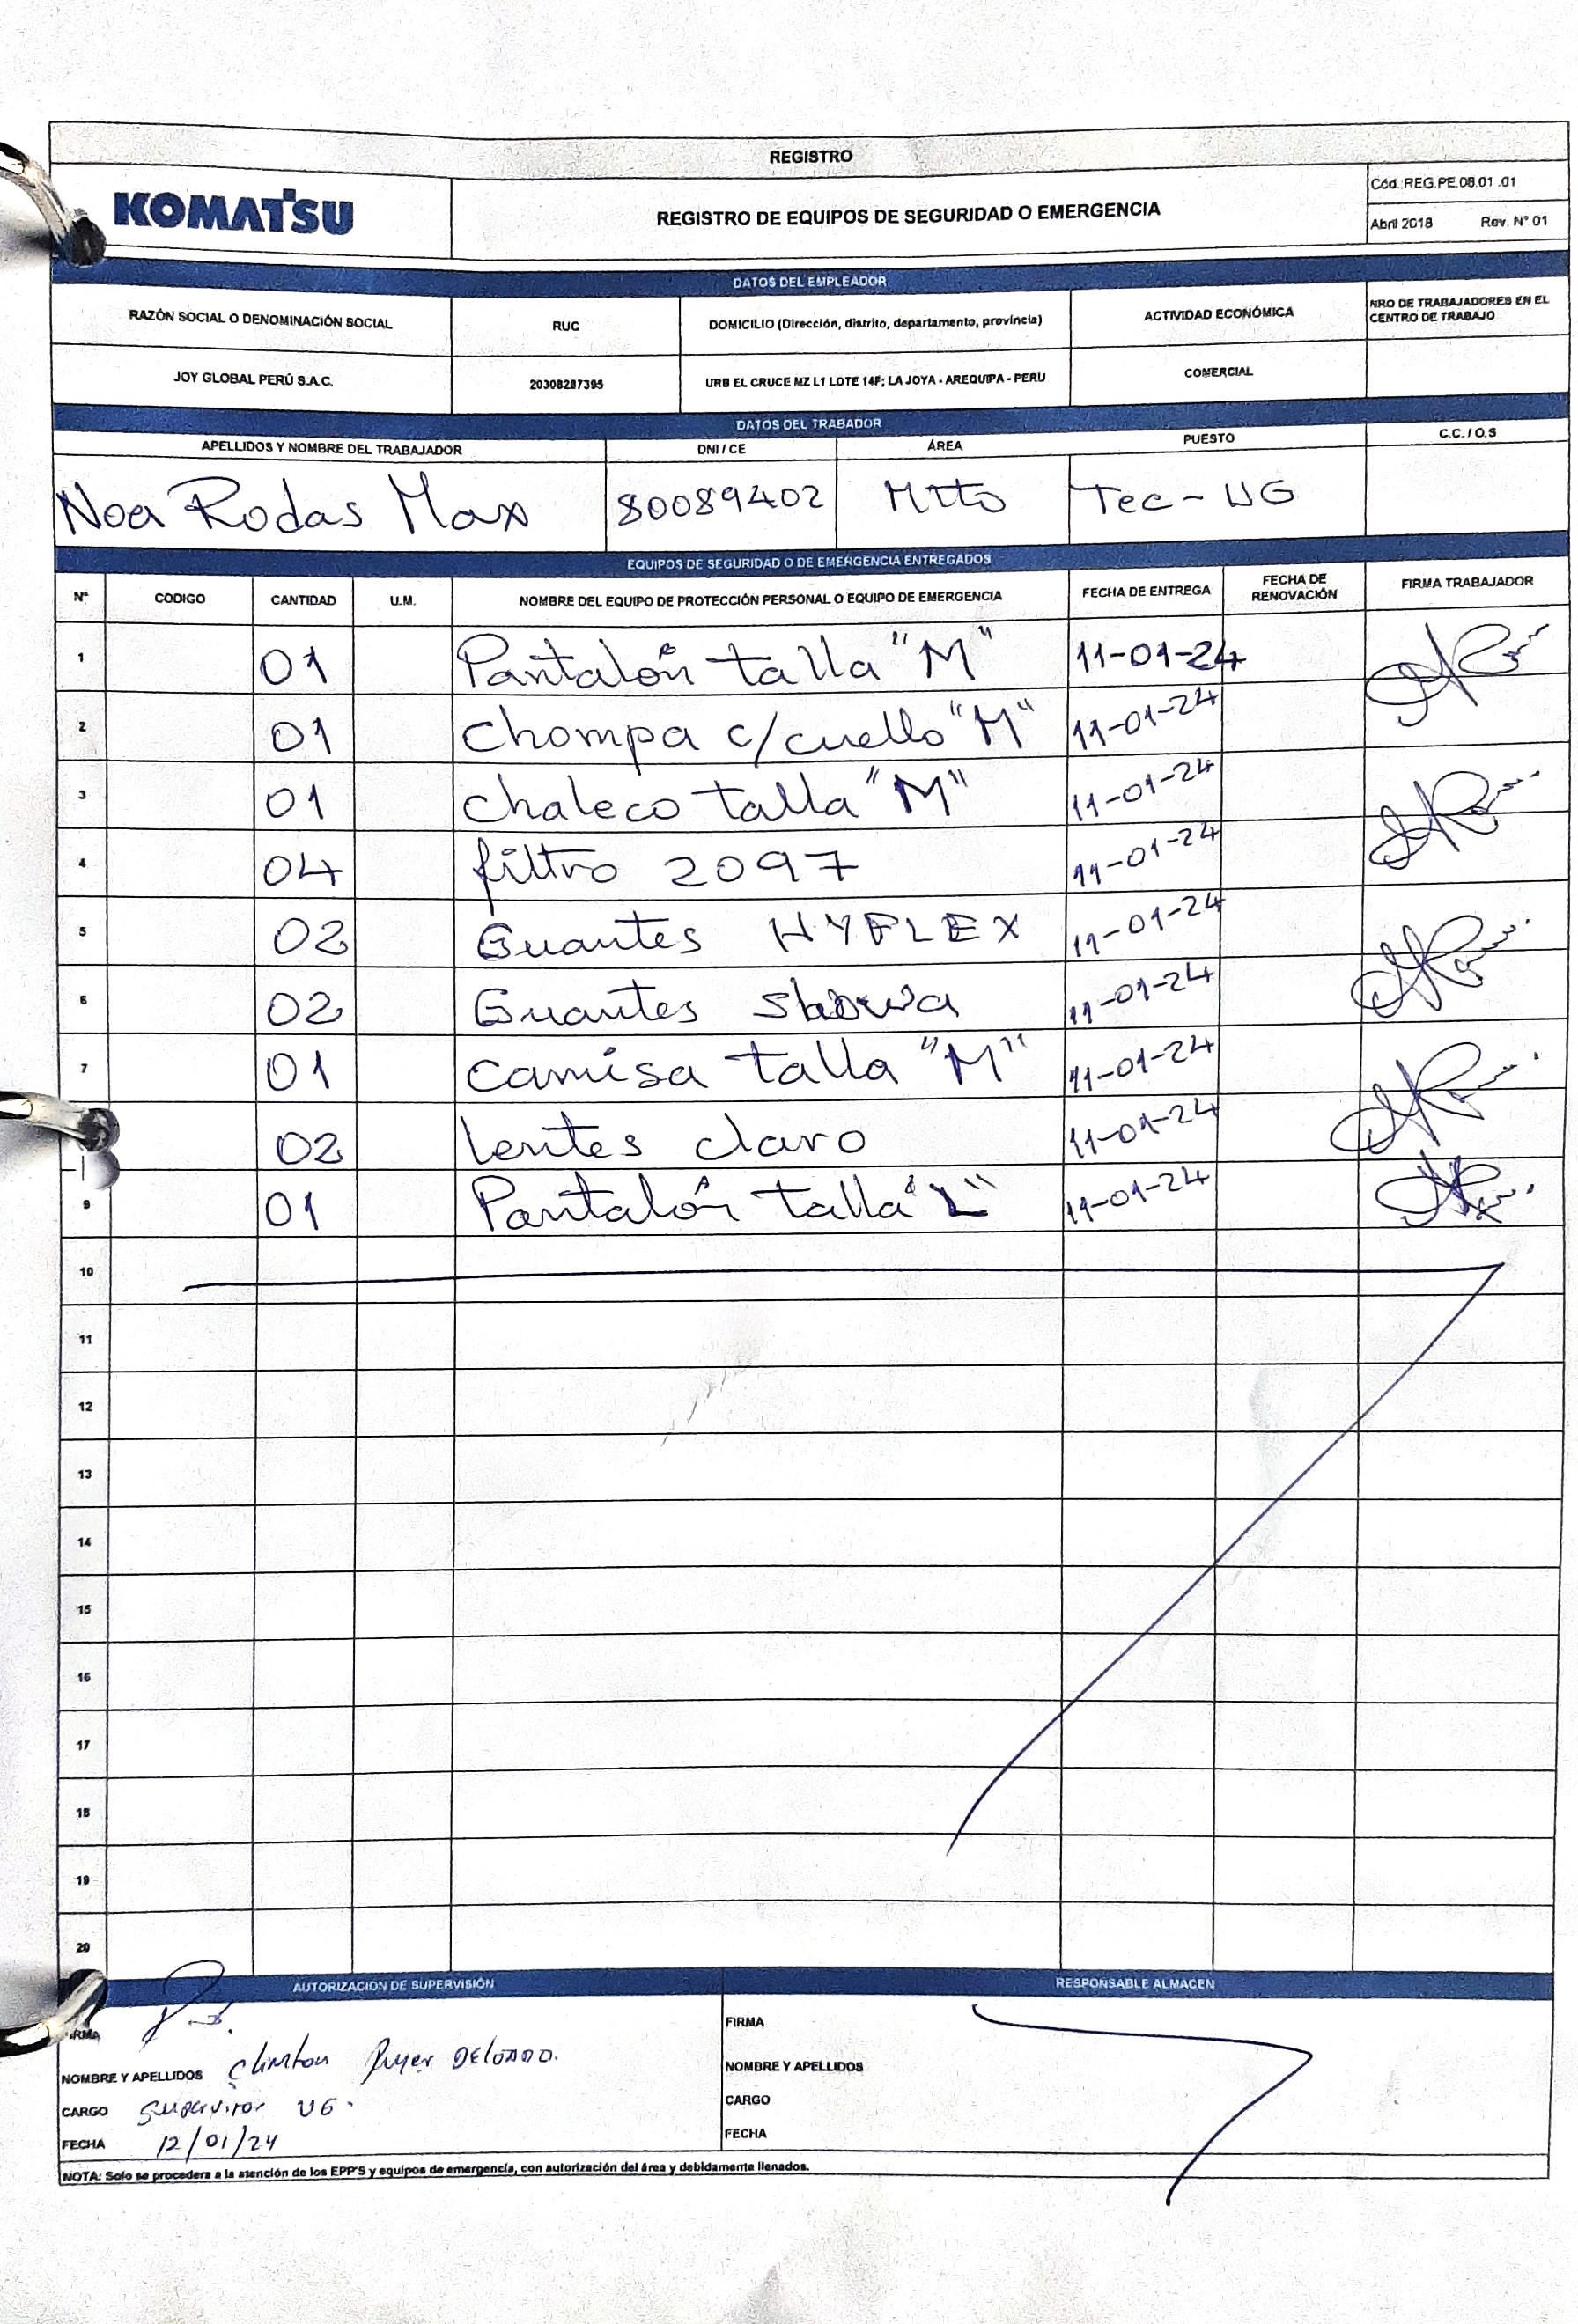 REGISTRO
KOMATSU
REGISTRO DE EQUIPOS DE SEGURIDAD O EMERGENCIA
Cód.:REG.PE.08.01 .01
Abril 2018 Rev. N° 01
DATOS DEL EMPLEADOR
RAZÓN SOCIAL O DENOMINACIÓN SOCIAL RUC DOMICILIO (Dirección, distrito, departamento, provincia) ACTIVIDAD ECONÓMICA NRO DE TRABAJADORES EN EL CENTRO DE TRABAJO
JOY GLOBAL PERÚ S.A.C. 20308287395 URB EL CRUCE MZ L1 LOTE 14F; LA JOYA - AREQUIPA - PERU COMERCIAL
DATOS DEL TRABADOR
APELLIDOS Y NOMBRE DEL TRABAJADOR DNI / CE ÁREA PUESTO C.C. / O.S
Noa Rodas Max 80089402 Mtto Tec - UG
EQUIPOS DE SEGURIDAD O DE EMERGENCIA ENTREGADOS
N° CODIGO CANTIDAD U.M. NOMBRE DEL EQUIPO DE PROTECCIÓN PERSONAL O EQUIPO DE EMERGENCIA FECHA DE ENTREGA FECHA DE RENOVACIÓN FIRMA TRABAJADOR
1 01 Pantalón talla "M" 11-01-24
2 01 Chompa c/cuello "M" 11-01-24
3 01 Chaleco talla "M" 11-01-24
4 04 filtro 2097 11-01-24
5 02 Guantes HYFLEX 11-01-24
6 02 Guantes 11-01-24
7 01 Camisa talla "M" 11-01-24
02 Lentes claro 11-01-24
9 01 Pantalón talla "L" 11-01-24
10
11
12
13
14
15
16
17
18
19
20
AUTORIZACION DE SUPERVISIÓN RESPONSABLE ALMACEN
FIRMA FIRMA
NOMBRE Y APELLIDOS Clinton DELGADO. NOMBRE Y APELLIDOS
CARGO Supervisor UG. CARGO
FECHA 12/01/24 FECHA
NOTA: Solo se procedera a la atención de los EPP'S y equipos de emergencia, con autorización del área y debidamente llenados.